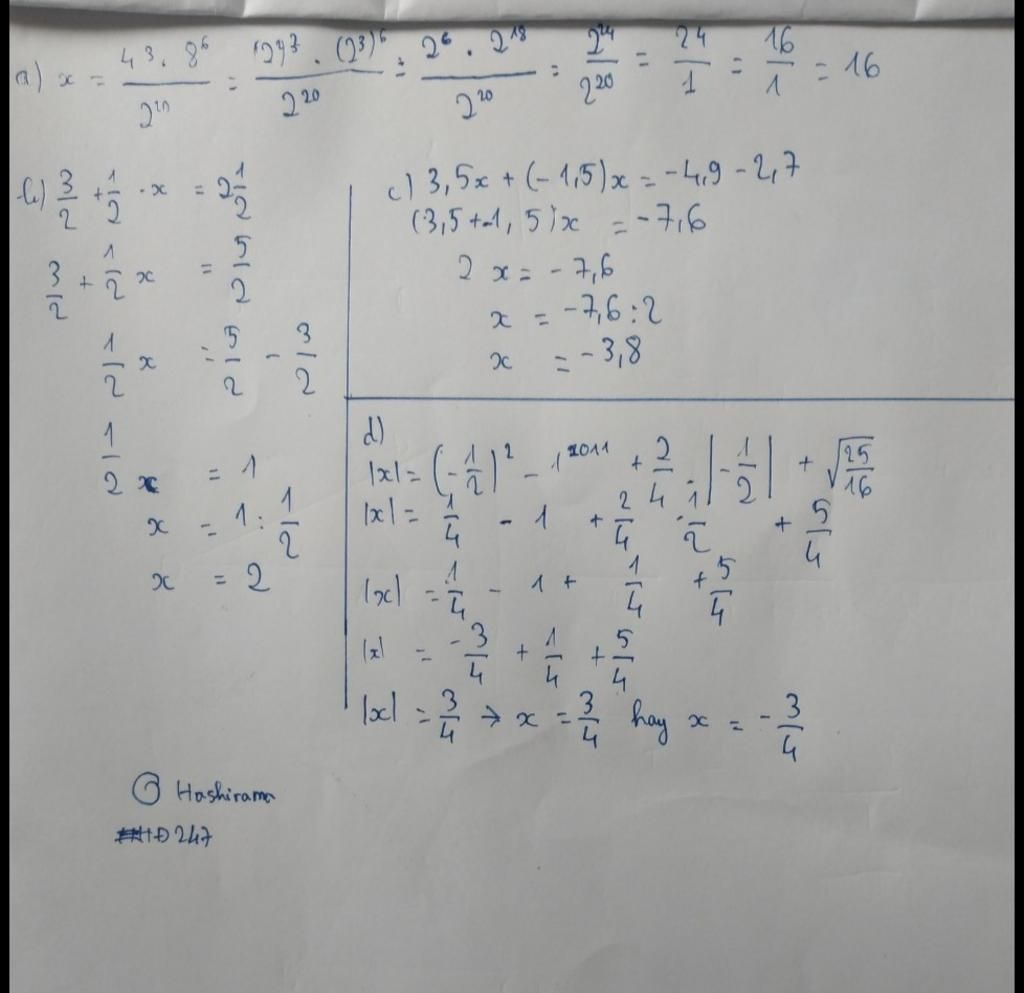 a) x = \frac{4^3 \cdot 8^6}{2^{20}} = \frac{(2^2)^3 \cdot (2^3)^6}{2^{20}} = \frac{2^6 \cdot 2^{18}}{2^{20}} = \frac{2^{24}}{2^{20}} = \frac{2^4}{1} = \frac{16}{1} = 16
b) \frac{3}{2} + \frac{1}{2} \cdot x = 2\frac{1}{2}
\frac{3}{2} + \frac{1}{2} x = \frac{5}{2}
\frac{1}{2} x = \frac{5}{2} - \frac{3}{2}
\frac{1}{2} x = 1
x = 1 : \frac{1}{2}
x = 2
c) 3,5x + (-1,5)x = -4,9 - 2,7
(3,5 + -1,5)x = -7,6
2 x = -7,6
x = -7,6 : 2
x = -3,8
d)
|x| = (-\frac{1}{2})^2 - 1^{2011} + \frac{2}{4} \cdot |-\frac{1}{2}| + \sqrt{\frac{25}{16}}
|x| = \frac{1}{4} - 1 + \frac{2}{4} \cdot \frac{1}{2} + \frac{5}{4}
|x| = \frac{1}{4} - 1 + \frac{1}{4} + \frac{5}{4}
|x| = -\frac{3}{4} + \frac{1}{4} + \frac{5}{4}
|x| = \frac{3}{4} → x = \frac{3}{4} hay x = -\frac{3}{4}
Hashirama
247